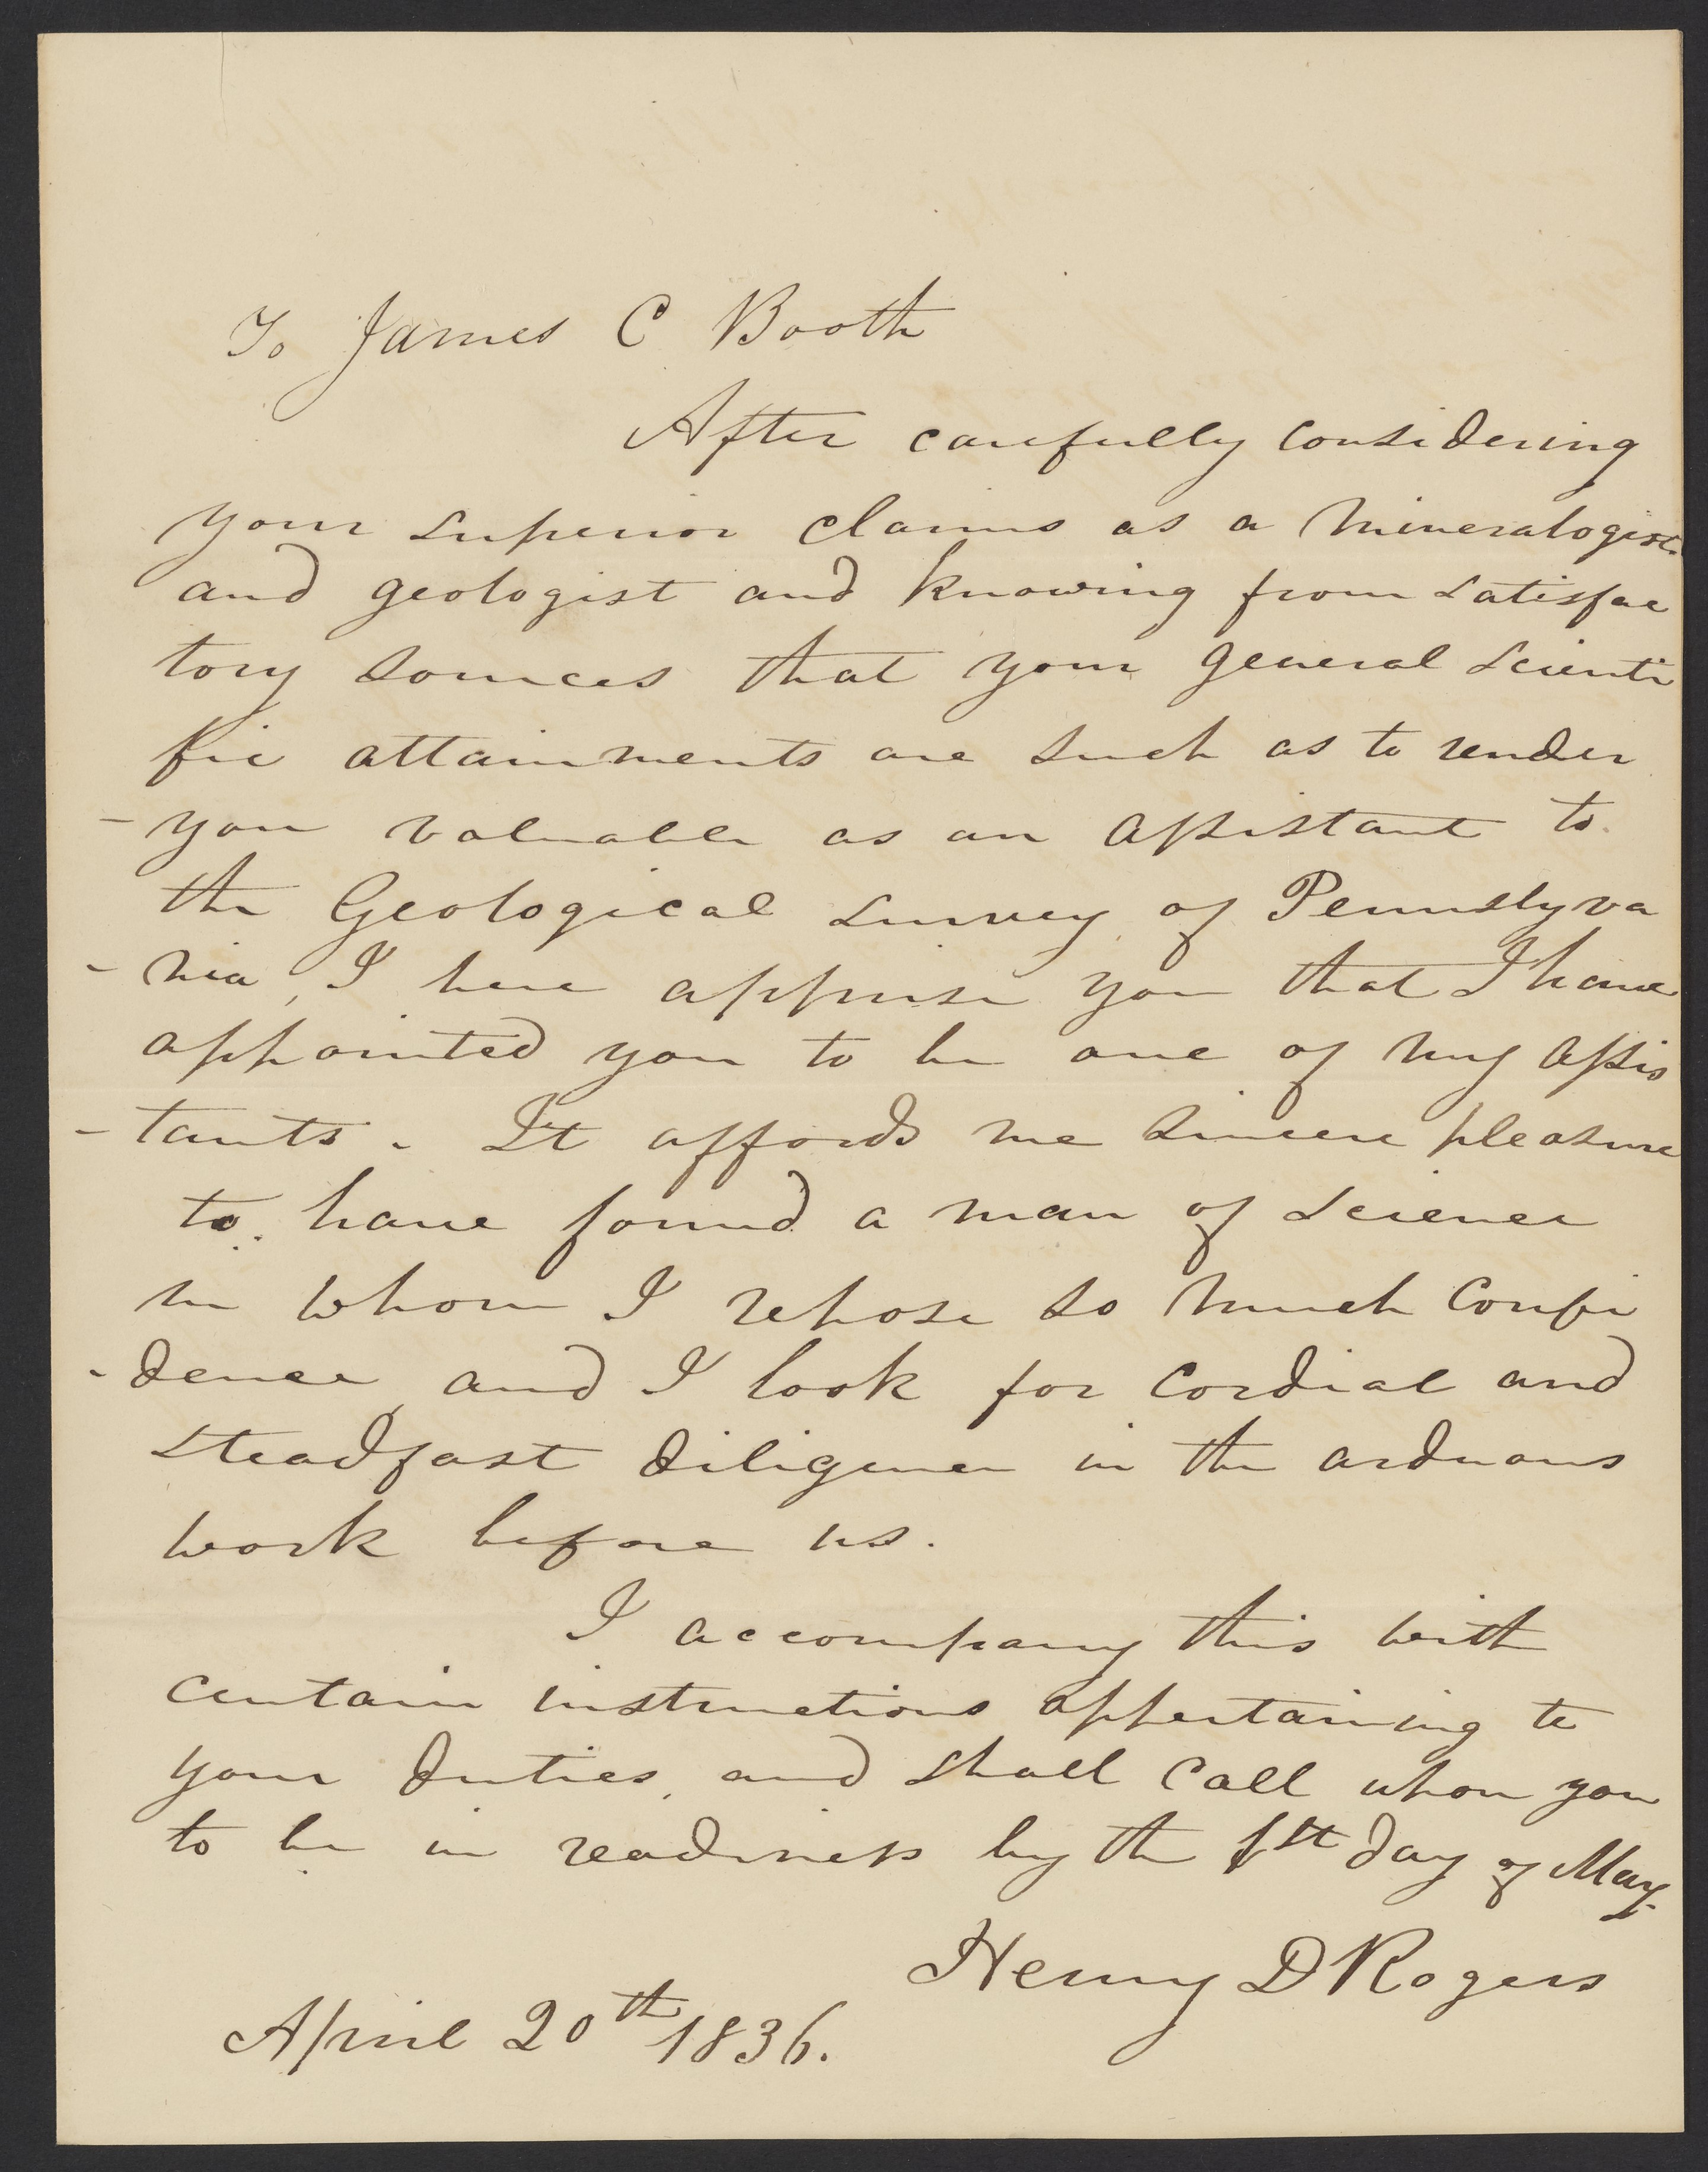 To James C Booth
After carefully considering
your superior claims as a mineralogist
and geologist and knowing from satisfac
tory sources that your general scienti
fic attainments are such as to render
- you valuable as an assistant to
the Geological survey of Pennslyva
- nia, I here apprise you that I have
appointed you to be one of my assis
- tants. It affords me sincere pleasure
to have found a man of science
in whom I repose so much confi
- dence, and I look for cordial and
steadfast diligence in the arduous
work before us.
I accompany this with
certain instructions appertaining to
your duties, and shall call upon you
to be in readiness by the 1st day of May.
Henry D Rogers
April 20th 1836.